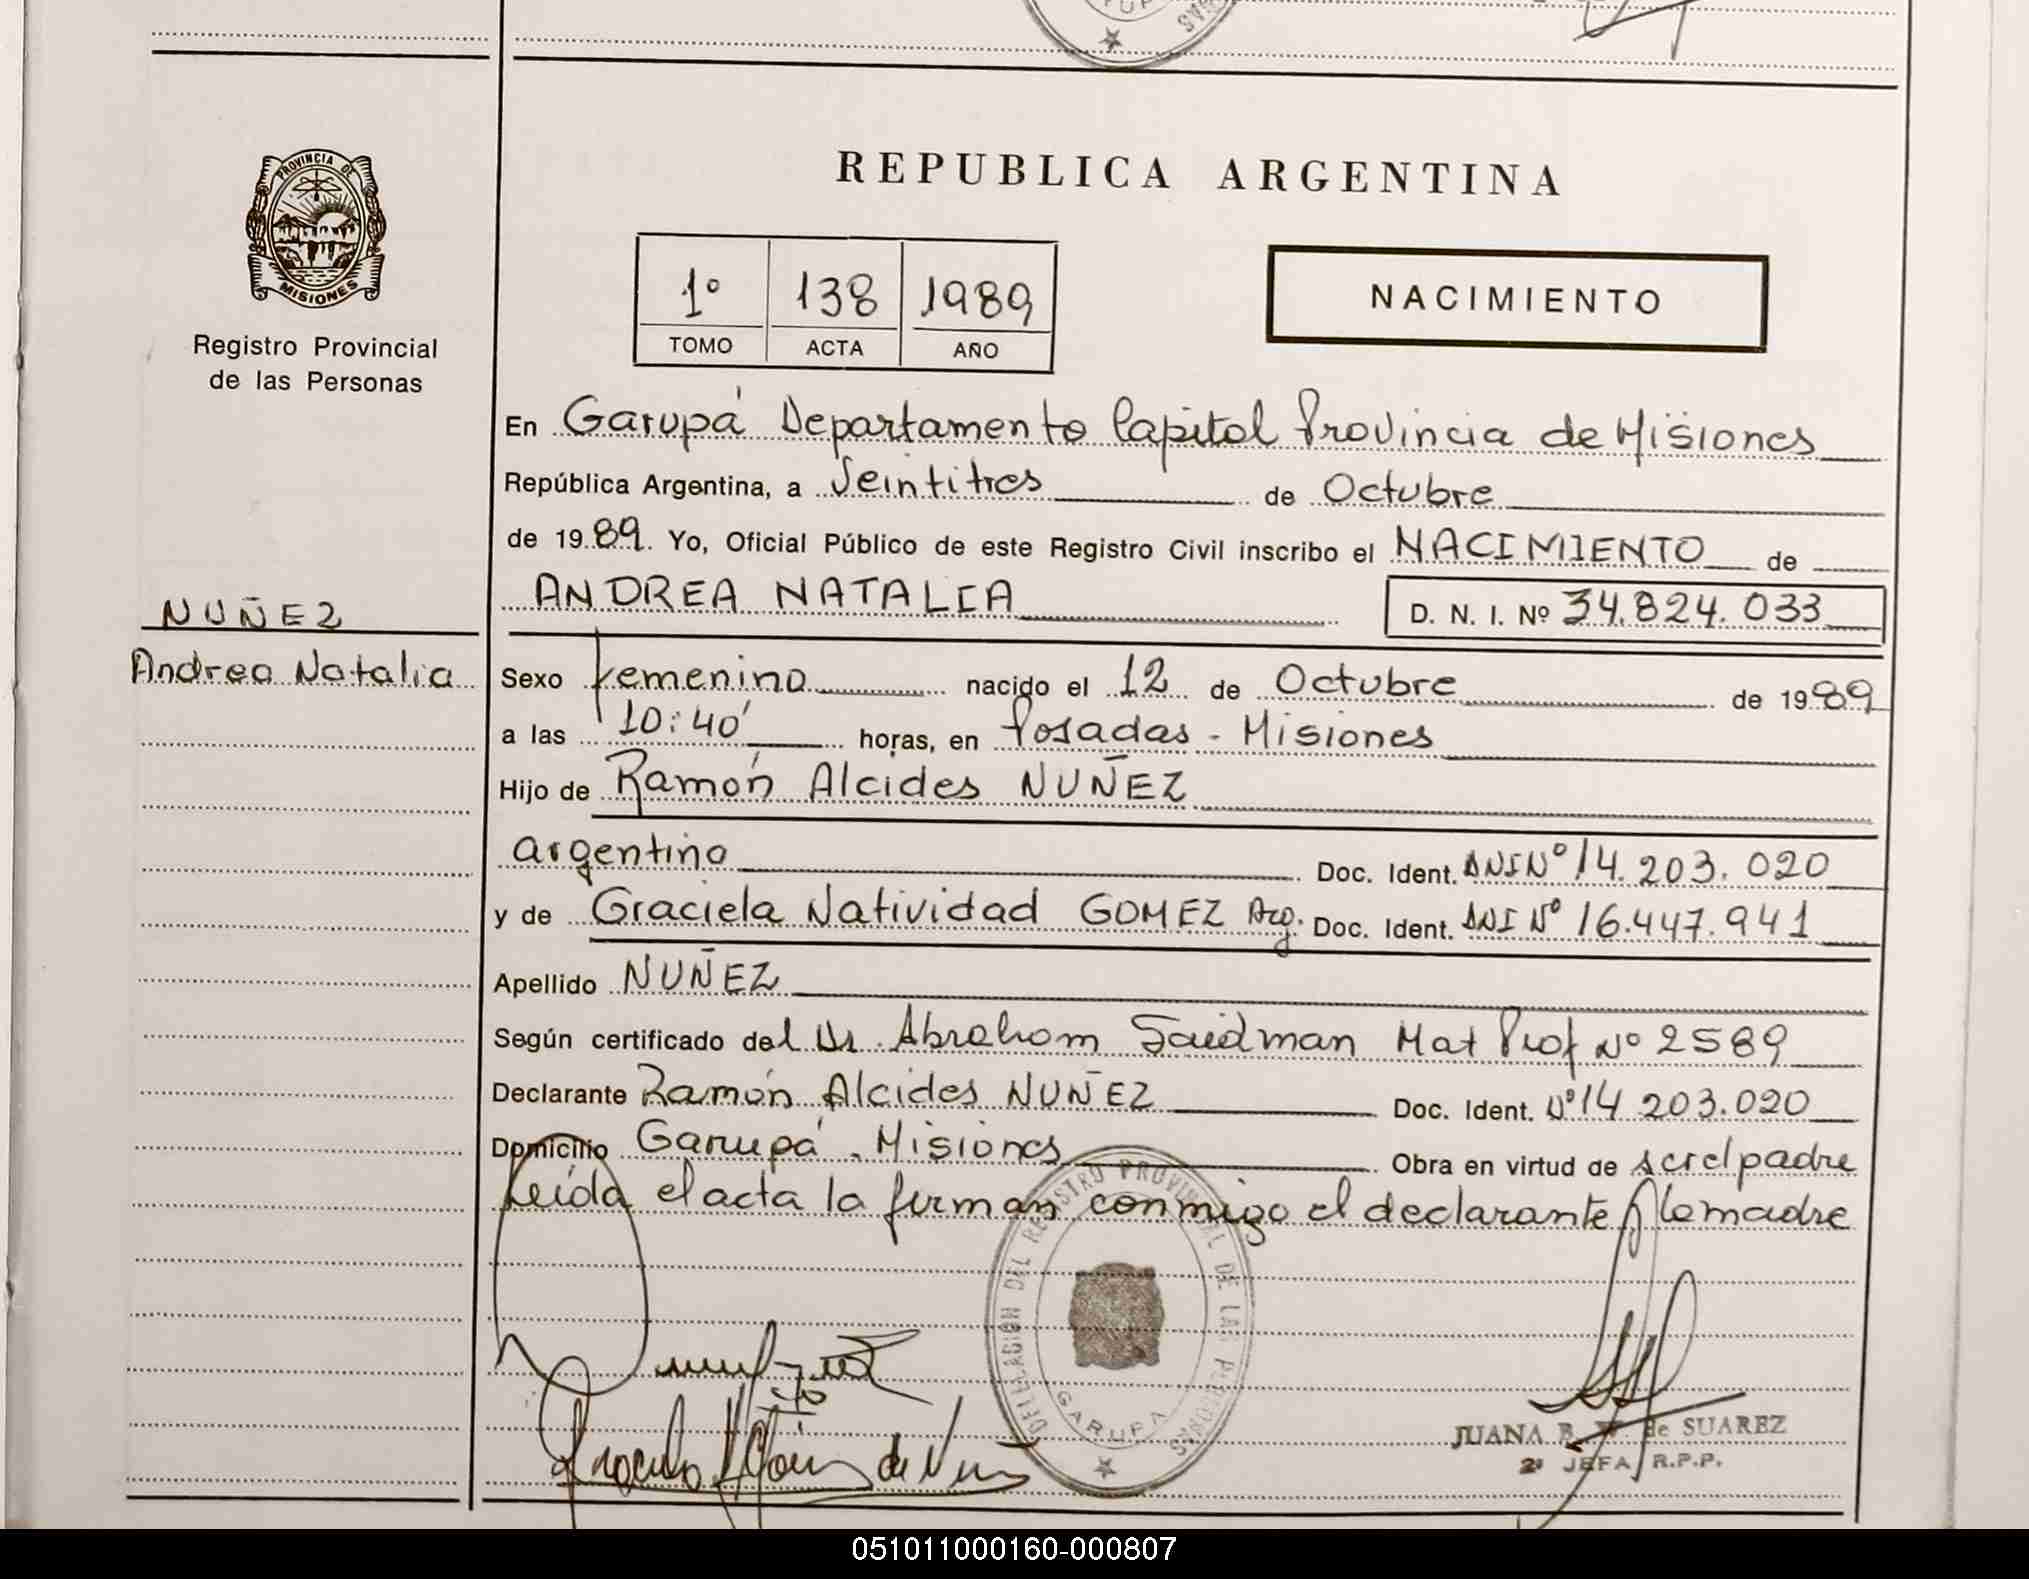 PROVINCIA DE
MISIONES
Registro Provincial
de las Personas
REPUBLICA ARGENTINA
1º 138 1989
TOMO ACTA AÑO
NACIMIENTO
En Garupá Departamento Capital Provincia de Misiones
República Argentina, a Veintitres de Octubre
de 1989. Yo, Oficial Público de este Registro Civil inscribo el NACIMIENTO de
ANDREA NATALIA D. N. I. Nº 34.824.033
NUÑEZ
Andrea Natalia
Sexo femenino nacido el 12 de Octubre de 1989
a las 10:40' horas, en Posadas - Misiones
Hijo de Ramón Alcides NUÑEZ
argentino Doc. Ident. DNI Nº 14.203.020
y de Graciela Natividad GOMEZ Arg. Doc. Ident. DNI Nº 16.447.941
Apellido NUÑEZ
Según certificado del Dr. Abraham Saidman Mat Prof Nº 2589
Declarante Ramón Alcides NUÑEZ Doc. Ident. Nº 14 203.020
Domicilio Garupá - Misiones Obra en virtud de ser el padre
Leída el acta la firman conmigo el declarante y la madre
DELEGACION DEL REGISTRO PROVINCIAL DE LAS PERSONAS
GARUPA
JUANA de SUAREZ
2ª JEFA R.P.P.
051011000160-000807